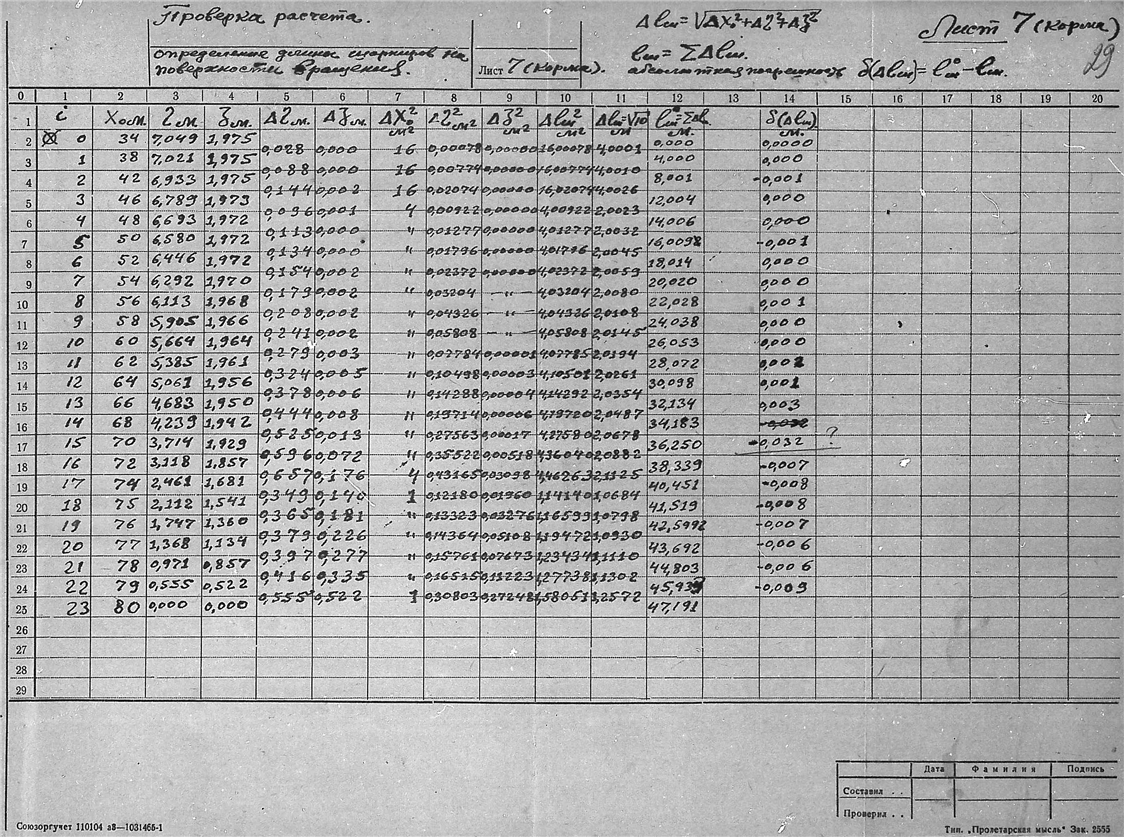 Проверка расчета.
определение длины шарниров на
поверхности вращения.
Лист 7 (Корма).
Δlш = √ΔX₀²+Δη²+Δζ²
lш = ΣΔlш.
абсолютная погрешность δ(Δlш) = l°ш − lш.
Лист 7 (Корма)
29
0 1 2 3 4 5 6 7 8 9 10 11 12 13 14 15 16 17 18 19 20
1 i X₀м. ηм. ζм. Δηм. Δζм. ΔX₀² м² Δη² м² Δζ² м² Δlш² м² Δlш=√10 м l°ш=ΣΔlш м. δ(Δlш) м.
2 0 34 7,049 1,975 0,000 0,0000
0,028 0,000 16 0,00078 0,00000 16,00078 4,0001
3 1 38 7,021 1,975 4,000 0,000
0,088 0,000 16 0,00774 0,00000 16,00774 4,0010
4 2 42 6,933 1,975 8,001 -0,001
0,144 0,002 16 0,02074 0,00000 16,02074 4,0026
5 3 46 6,789 1,973 12,004 0,000
0,096 0,001 4 0,00922 0,00000 4,00922 2,0023
6 4 48 6,693 1,972 14,006 0,000
0,113 0,000 " 0,01277 0,00000 4,01277 2,0032
7 5 50 6,580 1,972 16,0092 -0,001
0,134 0,000 " 0,01796 0,00000 4,01796 2,0045
8 6 52 6,446 1,972 18,014 0,000
0,154 0,002 " 0,02372 0,00000 4,02372 2,0059
9 7 54 6,292 1,970 20,020 0,000
0,179 0,002 " 0,03204 -"- 4,03204 2,0080
10 8 56 6,113 1,968 22,028 0,001
0,208 0,002 " 0,04326 -"- 4,04326 2,0108
11 9 58 5,905 1,966 24,038 0,000
0,241 0,002 " 0,05808 -"- 4,05808 2,0145
12 10 60 5,664 1,964 26,053 0,000
0,279 0,003 " 0,07784 0,00001 4,07785 2,0194
13 11 62 5,385 1,961 28,072 0,001
0,324 0,005 " 0,10498 0,00003 4,10501 2,0261
14 12 64 5,061 1,956 30,098 0,001
0,378 0,006 " 0,14288 0,00004 4,14292 2,0354
15 13 66 4,683 1,950 32,134 0,003
0,444 0,008 " 0,19714 0,00006 4,19720 2,0487
16 14 68 4,239 1,942 34,183
0,525 0,013 " 0,27563 0,00017 4,27580 2,0678
17 15 70 3,714 1,929 36,250 -0,032 ?
0,596 0,072 " 0,35522 0,00518 4,36040 2,0882
18 16 72 3,118 1,857 38,339 -0,007
0,657 0,176 4 0,43165 0,03098 4,46263 2,1125
19 17 74 2,461 1,681 40,451 -0,008
0,349 0,140 1 0,12180 0,01960 1,14140 1,0684
20 18 75 2,112 1,541 41,519 -0,008
0,365 0,181 " 0,13323 0,03276 1,16599 1,0798
21 19 76 1,747 1,360 42,5992 -0,007
0,379 0,226 " 0,14364 0,05108 1,19472 1,0930
22 20 77 1,368 1,134 43,692 -0,006
0,397 0,277 " 0,15761 0,07673 1,23434 1,1110
23 21 78 0,971 0,857 44,803 -0,006
0,416 0,335 " 0,16515 0,11223 1,27738 1,1302
24 22 79 0,555 0,522 45,933 -0,009
0,555 0,522 1 0,30803 0,27248 1,58051 1,2572
25 23 80 0,000 0,000 47,191
26
27
28
29
Дата Фамилия Подпись
Составил . .
Проверил . .
Союзоргучет 110104 а3—1031465-1
Тип. „Пролетарская мысль" Зак. 2555